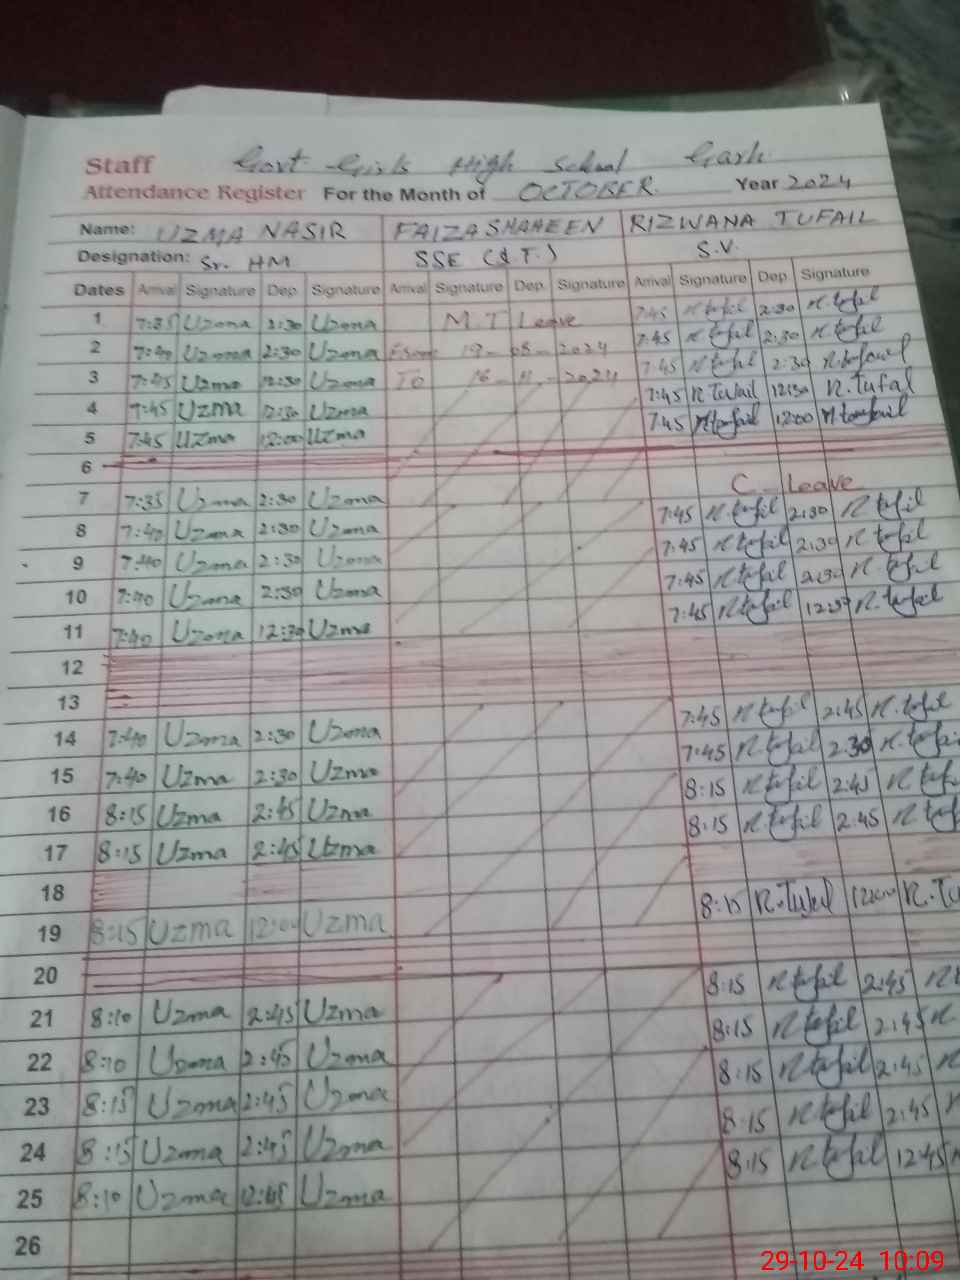 Staff Govt Girls High School Garh
Attendance Register For the Month of OCTOBER. Year 2024
Name: UZMA NASIR FAIZA SHAHEEN RIZWANA TUFAIL
Designation: Sr. HM SSE (d.T.) S.V.
Dates Arrival Signature Dep. Signature Arrival Signature Dep. Signature Arrival Signature Dep. Signature
1 7:35 Uzma 2:30 Uzma M.T Leave 7:45 R tufail 2:30 R.tufail
2 7:40 Uzma 2:30 Uzma From 2024 7:45 R tufail 2:30 R tufail
3 7:45 Uzma 12:30 Uzma To 2024 7:45 R tufail 2:30 R.tufail
4 7:45 Uzma 12:30 Uzma 7:45 R.Tufail 12:30 R.Tufal
5 7:45 Uzma 12:00 Uzma 7:45 R tufail 12:00 R tufail
6
7 7:35 Uzma 2:30 Uzma C Leave
8 7:40 Uzma 2:30 Uzma 7:45 R tufail 2:30 R tufail
9 7:40 Uzma 2:30 Uzma 7:45 R tufail 2:30 R tufail
10 7:40 Uzma 2:30 Uzma 7:45 R tufail 2:30 R tufail
11 7:40 Uzma 12:30 Uzma 7:45 R tufail 12:30 R.tufail
12
13
14 7:40 Uzma 2:30 Uzma 7:45 R tufail 2:45 R.tufail
15 7:40 Uzma 2:30 Uzma 7:45 R tufail 2:30
16 8:15 Uzma 2:45 Uzma 8:15 R tufail 2:45 R
17 8:15 Uzma 2:45 Uzma 8:15 R tufail 2:45 R
18
19 8:15 Uzma 12:00 Uzma 8:15 R.Tufail R.
20
21 8:10 Uzma 2:45 Uzma 8:15 R tufail 2:45
22 8:10 Uzma 2:45 Uzma 8:15 R tufail 2:45 R
23 8:15 Uzma 2:45 Uzma 8:15 R tufail 2:45
24 8:15 Uzma 2:45 Uzma 8:15 R tufail 2:45
25 8:10 Uzma 12:45 Uzma 8:15 R tufail 12:45
26
29-10-24 10:09